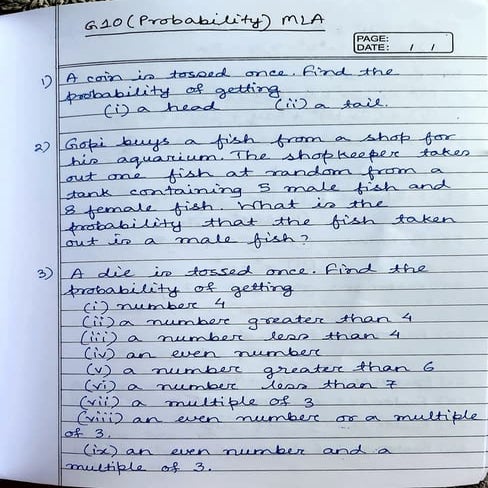 G10 (Probability) MLA
PAGE:
DATE: / /
1) A coin is tossed once. Find the
probability of getting
(i) a head (ii) a tail.
2) Gopi buys a fish from a shop for
his aquarium. The shopkeeper takes
out one fish at random from a
tank containing 5 male fish and
8 female fish. What is the
probability that the fish taken
out is a male fish?
3) A die is tossed once. Find the
probability of getting
(i) number 4
(ii) a number greater than 4
(iii) a number less than 4
(iv) an even number
(v) a number greater than 6
(vi) a number less than 7
(vii) a multiple of 3
(viii) an even number or a multiple
of 3.
(ix) an even number and a
multiple of 3.